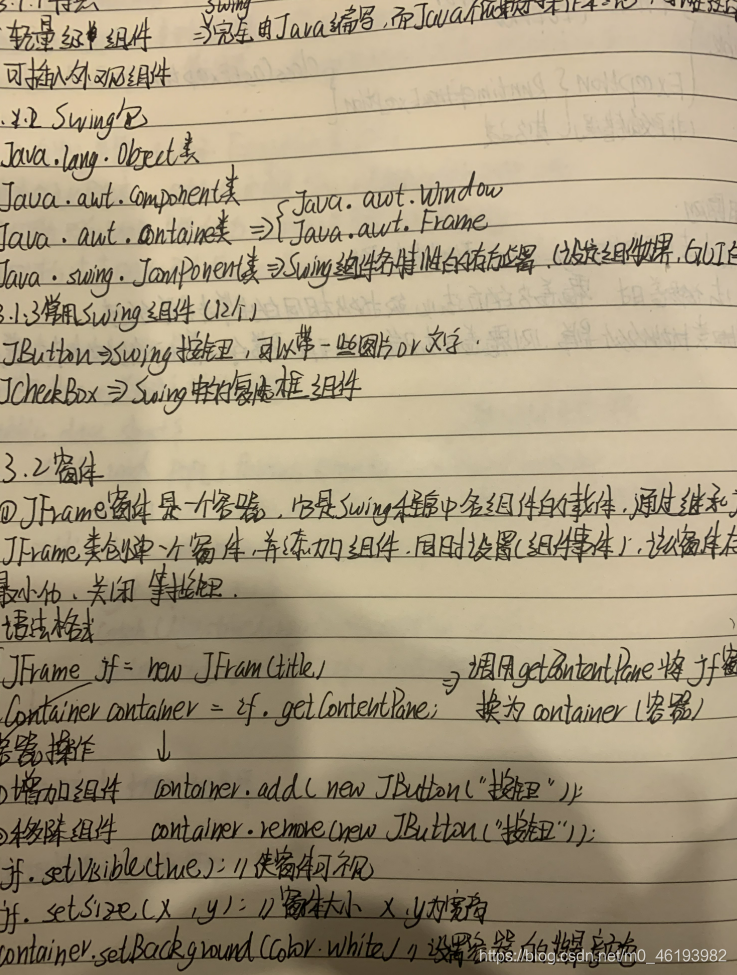 3.1.1 特点
轻量级组件 ⇒ Swing 完全由Java编写,而Java不依赖
可插入外观组件
.1.2 Swing包
Java.lang.Object类
Java.awt.component类
Java.awt.Containe类 ⇒{ Java.awt.Window
Java.awt.Frame
Java.swing.Jcomponent类 ⇒ Swing组件各特性的 (设定组件边界, GUI
3.1.3 常用Swing组件(12个)
JButton ⇒ Swing按钮,可以带一些图片or文字.
JCheckBox ⇒ Swing中的复选框组件
3.2 窗体
① JFrame窗体是一个容器,它是Swing程序中各组件的载体,通过继承
JFrame类创建一个窗体,并添加组件,同时设置(组件事件),该窗体存
最小化、关闭等按钮.
语法格式
JFrame jf = new JFram(title) ⇒ 调用getContentPane将jf窗
Container container = jf.getContentPane; 换为container(容器)
容器操作 ↓
①增加组件 container.add( new JButton("按钮"));
②移除组件 container.remove(new JButton("按钮"));
jf.setVisible(true); // 使窗体可视
jf.setSize(x,y); // 窗体大小 x,y为宽高
container.setBackground(Color.white) // 设置容器的背景
https://blog.csdn.net/m0_46193982